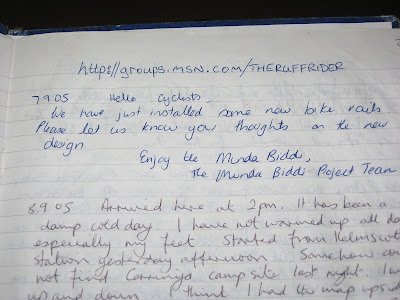 https//groups.msn.com/THERUFFRIDER
7.9.05 Hello Cyclists,
We have just installed some new bike rails
Please let us know you thoughts on the new
design
Enjoy the Munda Biddi,
The Munda Biddi Project Team
8.9.05 Arrived here at 2pm. It has been a
damp cold day. I have not warmed up all da
especially my feet. Started from Kelmscot
station yesterday afternoon. Somehow co
not find Carinyas campsite last night. I w
up and down. I think I had the map upsid